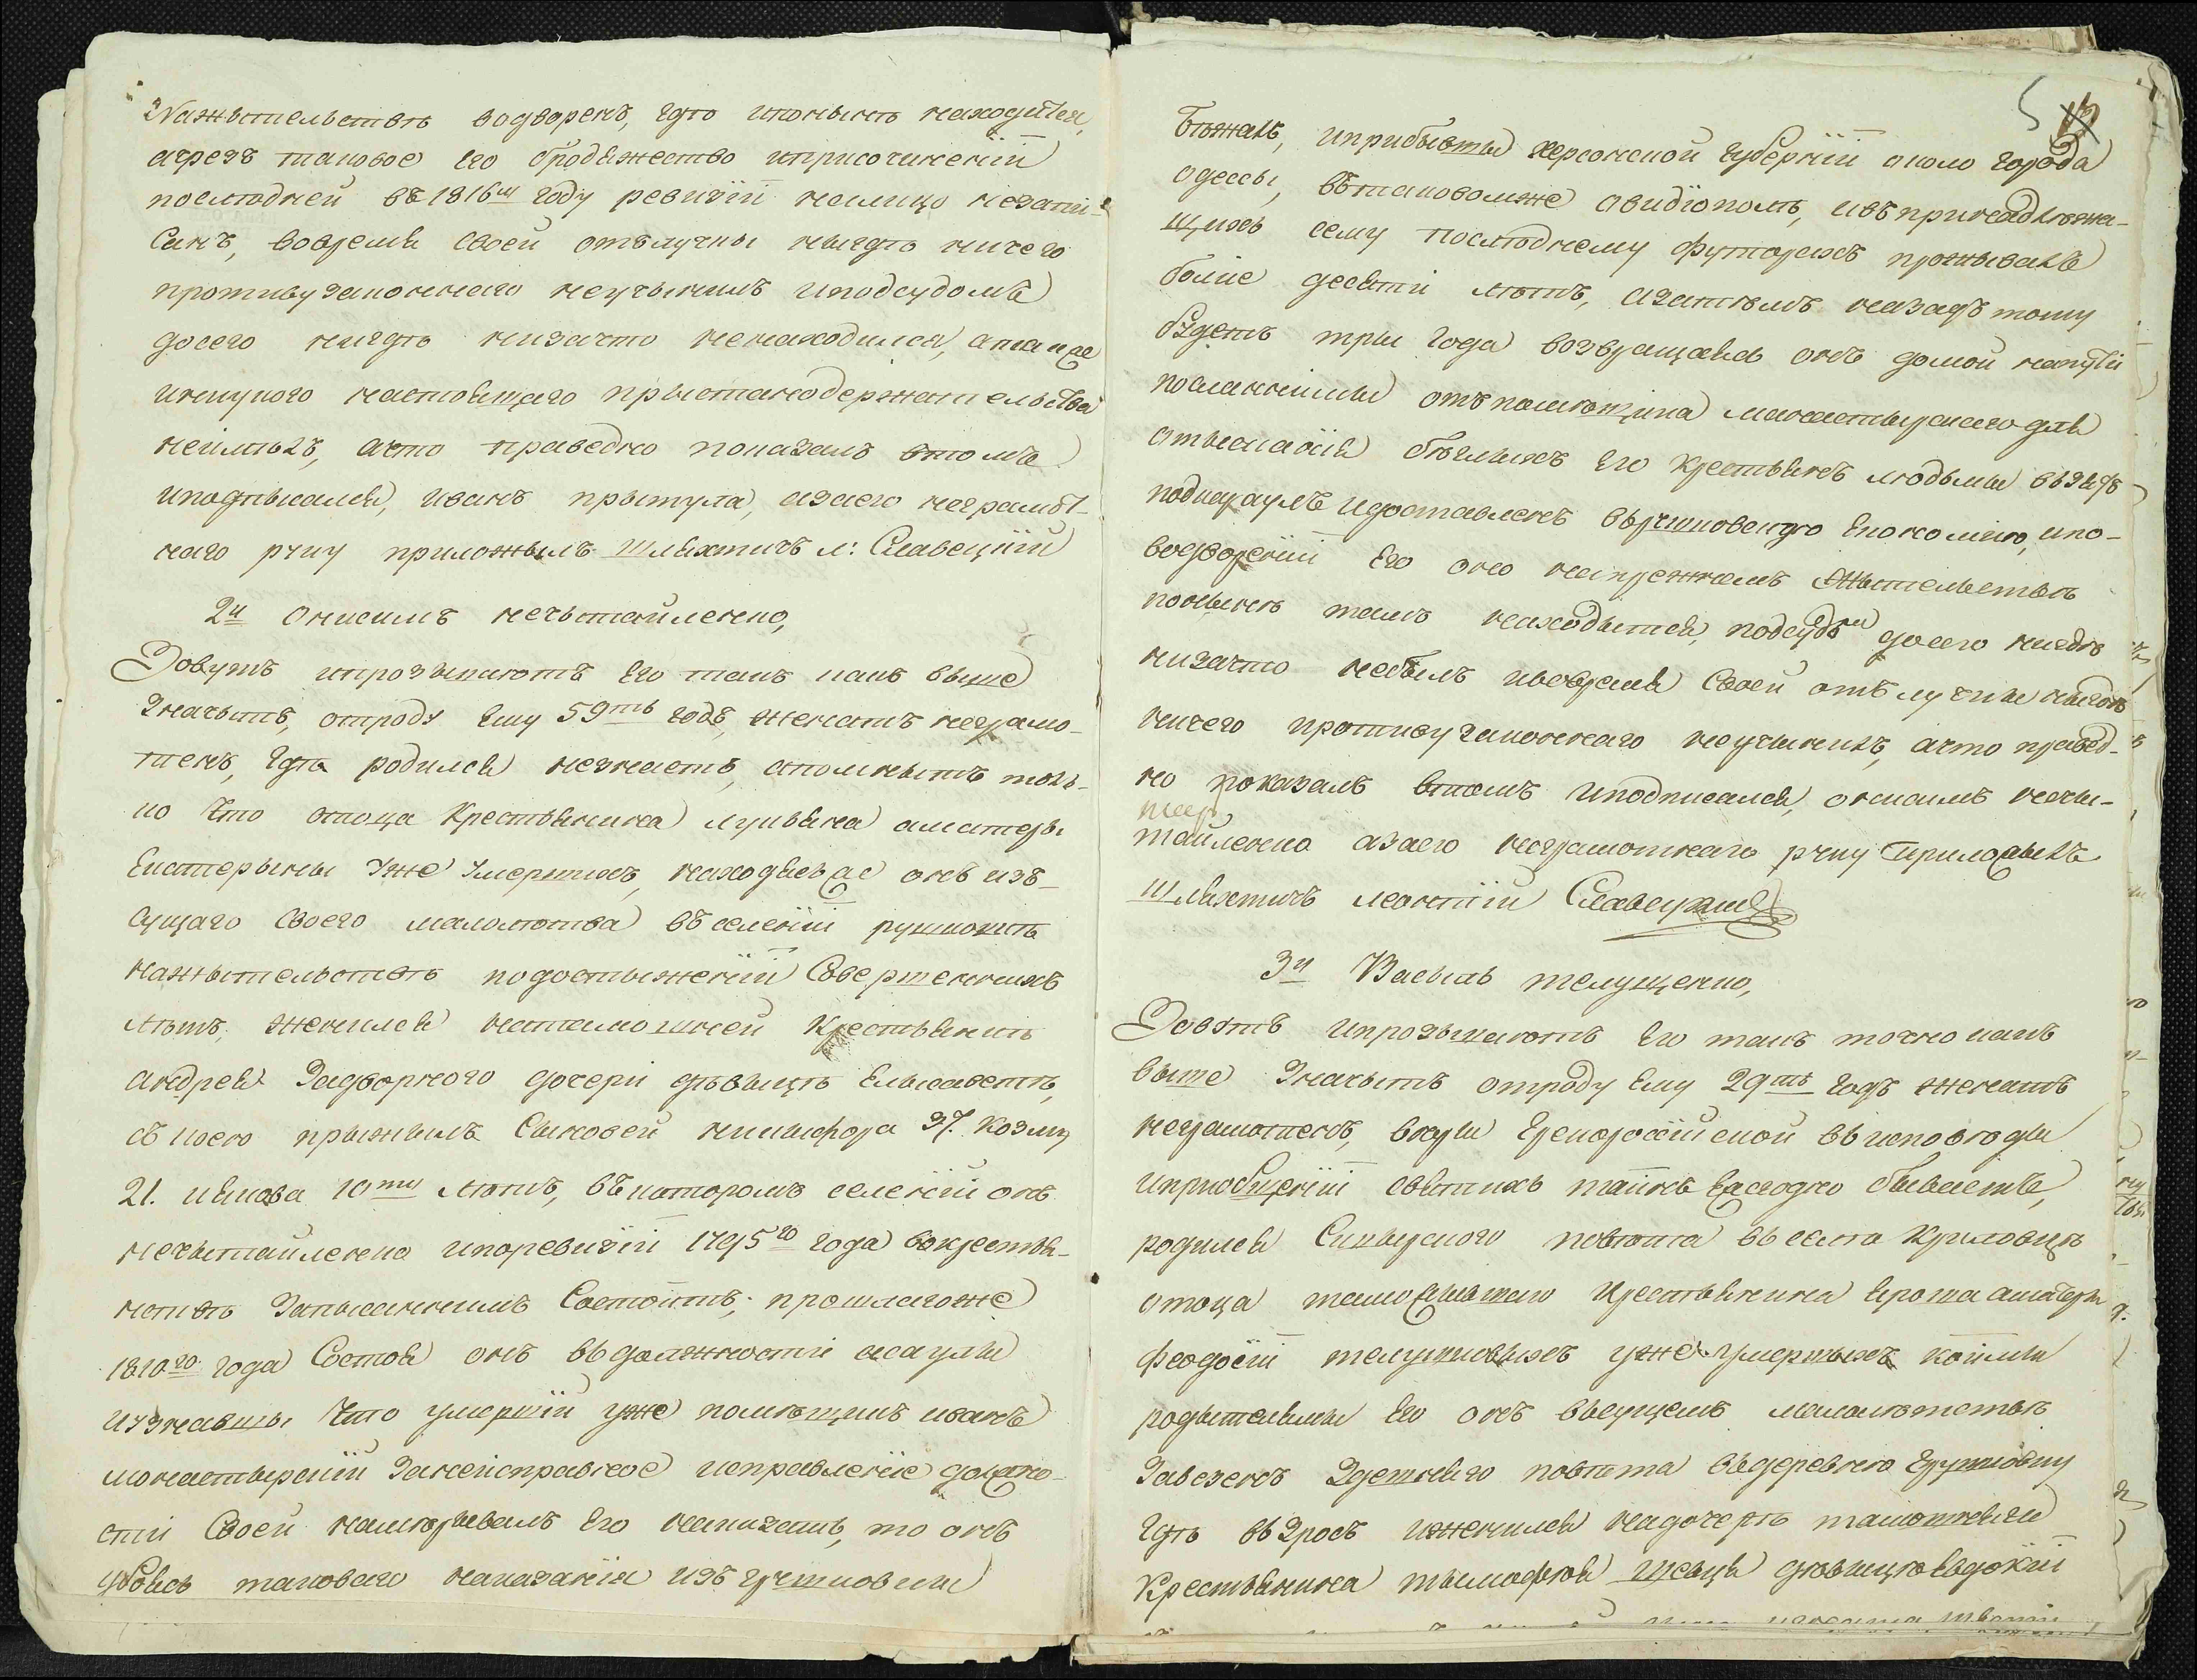 Нажытельствѣ водворенъ, гдѣ ипонынѣ находится,
ачрезъ таковое его бродяжество иприсочиненіи
последней въ 1816м году ревизіи налицо незапи-
санъ, вовремя своей отълучки нигдѣ ничего
противузаконнаго неучынилъ иподсудомъ
досего нигдѣ низачто ненаходился, атакже
инщукого настоящаго прыстанодержательства
неимѣлъ, ачто праведно показалъ втомъ
иподпысался, иванъ прытула, азаего неграмот-
наго руку приложылъ шляхтичъ л: Славецкій
2й Онисимъ нечытайленко,
Зовутъ ипрозываютъ его такъ какъ выше
Значытъ, отроду ему 59ть годъ, женатъ неграмо-
тенъ, гдѣ родился незнаетъ, апомнытъ толь-
ко что отъца крестьянина лукьяна аматеры
Екатерыны уже умершихъ, находывся онъ изъ-
сущаго своего малолѣтства въ селеніи
нажытельствѣ подостыженіи Совершенныхъ
лѣтъ, женился натамошней крестьянинѣ
андрея Задворного дочери дѣвыцѣ Елысаветѣ,
съ коею прыжылъ Сыновей никифора 37. козму
21. иякова 10ти лѣтъ, въ которомъ селеніи онъ
нечытайленко ипоревизіи 1795го года вокрестья-
нствѣ Запысаннымъ Состоитъ; прошлагоже
1810го года Состоя онъ въ должности асаулы
иузнавшы что умершій уже помѣщикъ иванъ
монастырскій Занеисправное исправленіе должно-
сти Своей намѣрывалъ его наказать, то онъ
убоясь таковаго наказанія изъ
5
бѣжалъ, иприбывшы херсонской губерніи около города
одессы, въ таковомже авидіополѣ, ивъ принадлѣжа-
щихъ сему последнему футорахъ прожывалъ
боліе десяти лѣтъ, азатѣмъ назадъ тому
будетъ тры года возвращаясь онъ домой напути
посланнымы отъ помѣщика манастырскаго для
отысканія бѣглыхъ его крестьянъ людьмы взятъ
подкараулъ идоставленъ економію, ипо-
водвореніи его оною напрежнемъ жытельствѣ
понынѣ тамъ находытся, подсудомъ досего нигдѣ
низачто небылъ ивовремя Своей отълучкы нигдѣ
ничего противузаконнаго неучынилъ, ачто правед-
но показалъ втомъ иподписался, онисимъ нечы-
тайленко азаего неграмотнаго руку приложылъ
шляхтичъ леонтій Славецкій
3й Василь телущенко,
Зовутъ ипрозываютъ его такъ точно какъ
выше Значытъ отроду ему 29ть годъ женатъ
неграмотенъ, вѣры Грекоросійской въ исповѣды
ипріобщеніи святыхъ таинъ Ежегодно бываетъ,
родился Сквырского повѣта въ селѣ Криловцѣ
отоца тамошняго крестьянина аматеры
феодосіи уже умершыхъ коимы
родытелямы его онъ въсущемъ малолѣтствѣ
Завезенъ Здешняго повѣта въ деревню
гдѣ взросъ иженился надочерѣ тамошняго
Крестьянина тымофѣя дѣвыцѣ Евдокіи